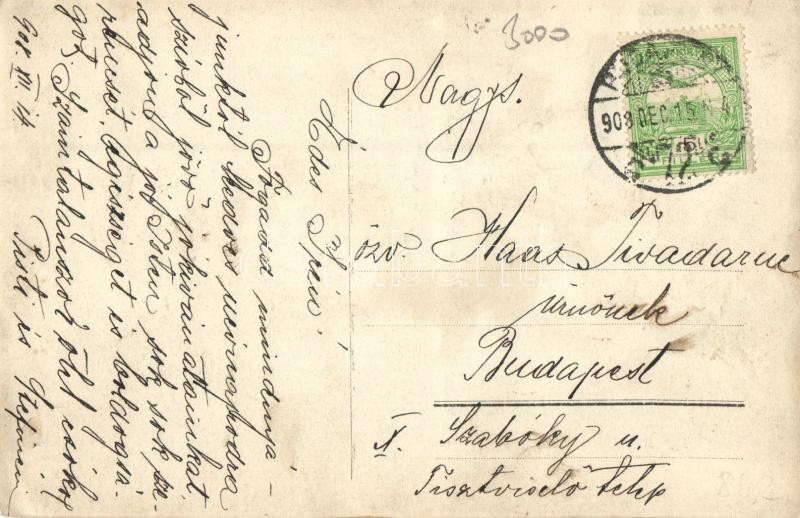 3000
908 DEC 15
Nagys.
özv. Haas Tivadarné
úrnőnek
Budapest
X. Szabóky u.
Tisztviselő telep
Édes Irén!
Fogadd mindnyá-
junktól kedves neved napodra
szívből jövő jókívánatainkat
adjon a jó Isten sok sok sze-
rencsét, egészséget és boldogsá-
got. Számtalanszor ölel csókol
Pisti és Stefinéni
908 XII 14